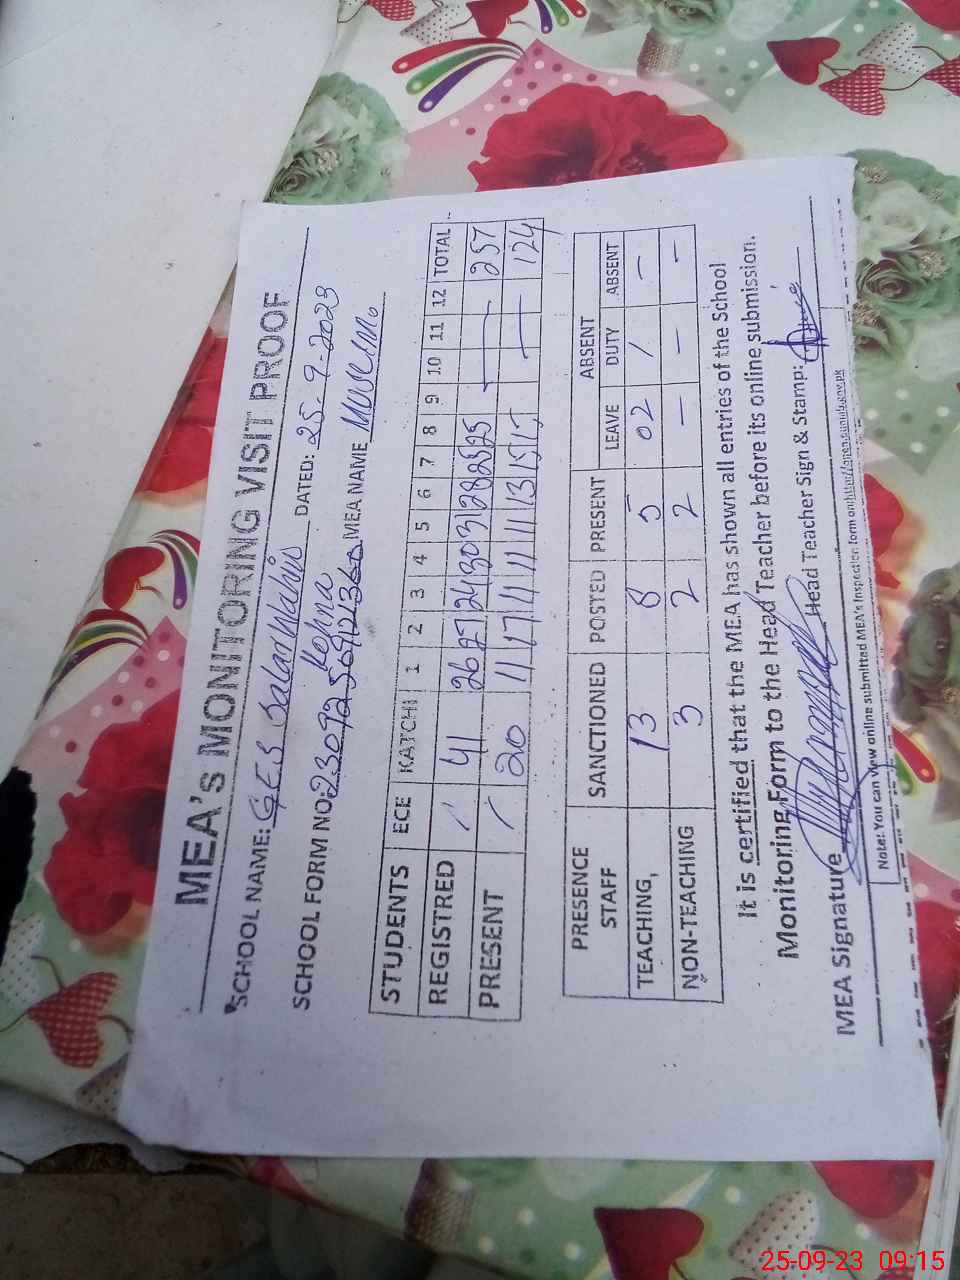 MEA's MONITORING VISIT PROOF
SCHOOL NAME: GES
DATED: 25-9-2023
SCHOOL FORM NO: MEA NAME
STUDENTS ECE KATCHI 1 2 3 4 5 6 7 8 9 10 11 12 TOTAL
REGISTRED / 41 26 27 24 30 31 28 25 25 — 257
PRESENT / 20 11 17 11 11 11 13 15 15 — 124
PRESENCE STAFF SANCTIONED POSTED PRESENT ABSENT
LEAVE DUTY ABSENT
TEACHING, 13 8 5 02 / —
NON-TEACHING 3 2 2 — — —
It is certified that the MEA has shown all entries of the School
Monitoring Form to the Head Teacher before its online submission.
MEA Signature Head Teacher Sign & Stamp:
Note: You can view online submitted MEA's Inspection form on
25-09-23 09:15